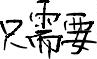 只需要